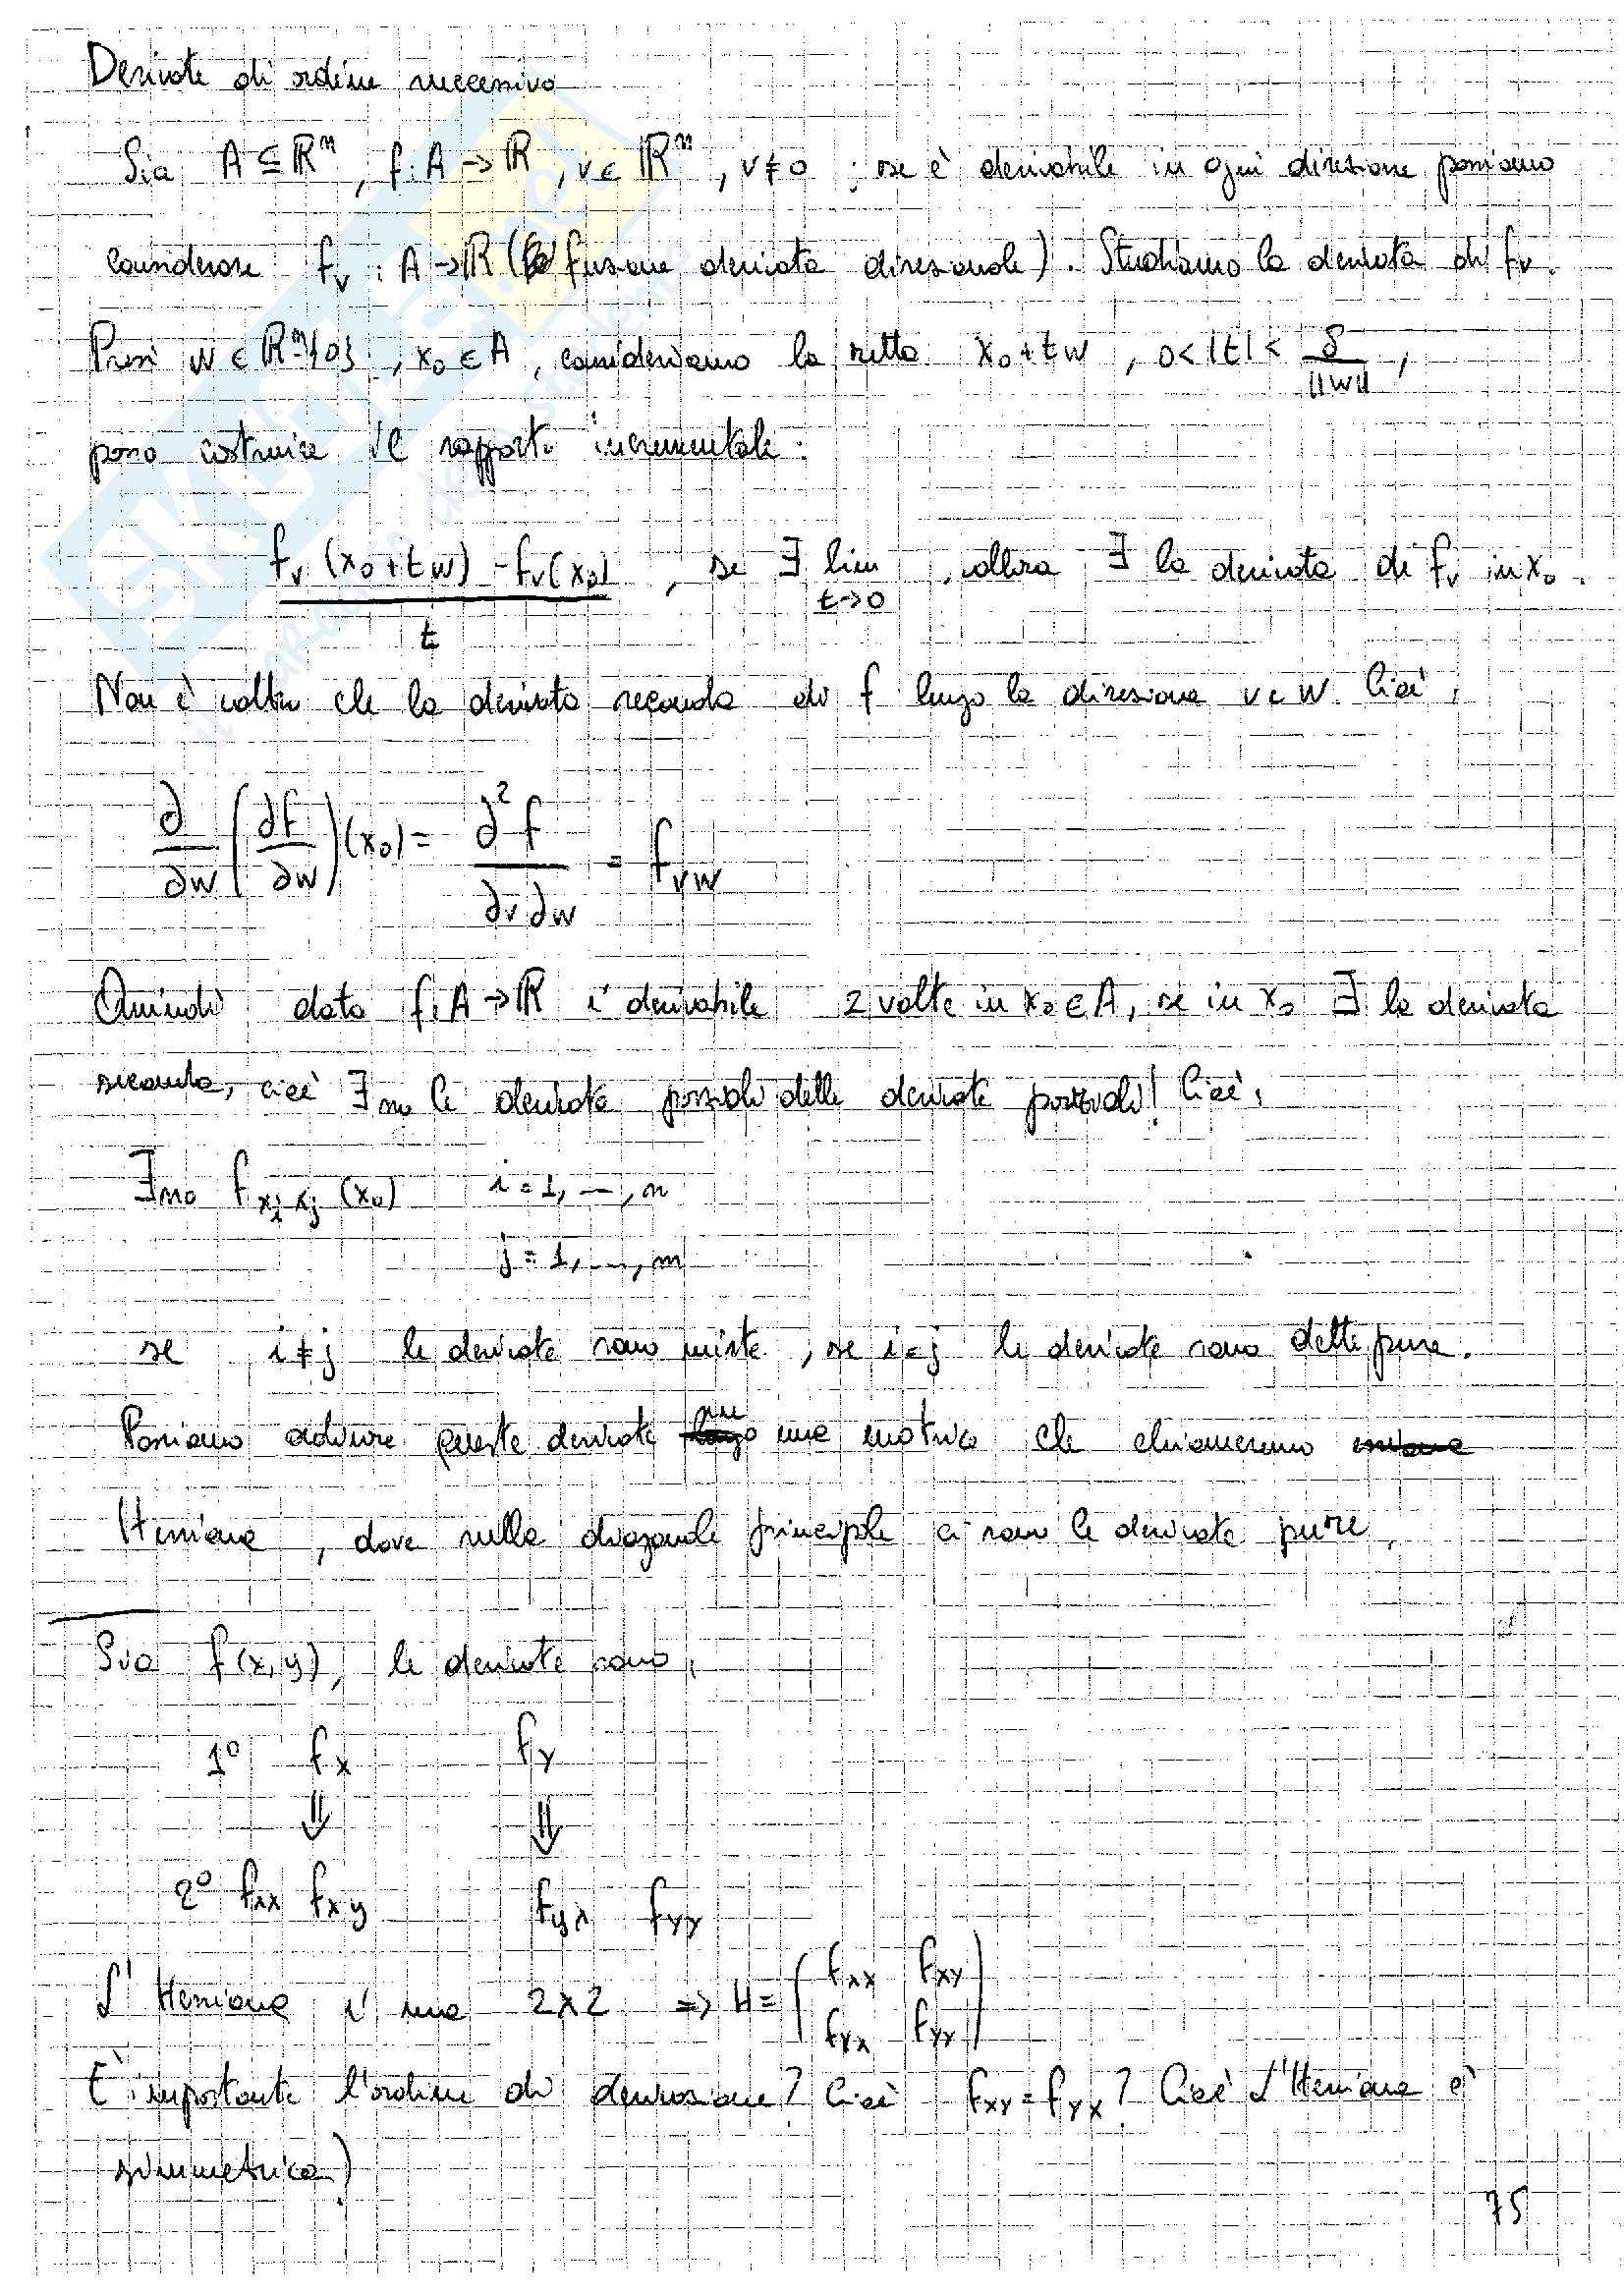 Derivate di ordine successivo
Sia A ⊆ ℝⁿ, f: A → ℝ, v ∈ ℝⁿ, v ≠ 0; se è derivabile in ogni direzione possiamo
considerare f_v : A → ℝ (la funzione derivata direzionale). Studiamo la derivata di f_v.
Presi w ∈ ℝⁿ\{0}, x₀ ∈ A, consideriamo la retta x₀ + tw, 0 < |t| < δ/||w||,
posso costruire il rapporto incrementale:
(f_v(x₀ + tw) - f_v(x₀))/t, se ∃ lim t→0, allora ∃ la derivata di f_v in x₀.
Non è altro che la derivata seconda di f lungo la direzione v e w. Cioè:
∂/∂w (∂f/∂w)(x₀) = ∂²f/∂v∂w = f_vw
Quindi data f: A → ℝ è derivabile 2 volte in x₀ ∈ A, se in x₀ ∃ la derivata
seconda, cioè ∃no le derivate parziali delle derivate parziali! Cioè:
∃no f_{x_i x_j}(x₀) i = 1, ..., n
j = 1, ..., n
se i ≠ j le derivate sono miste, se i = j le derivate sono dette pure.
Possiamo queste derivate su una matrice che chiameremo
Hessiana, dove sulla diagonale principale ci sono le derivate pure.
Sia f(x,y), le derivate sono:
1° f_x f_y
⇓ ⇓
2° f_xx f_xy f_yx f_yy
L'Hessiana è una 2x2 ⇒ H = (f_xx f_xy
f_yx f_yy)
E' importante l'ordine di derivazione? Cioè f_xy = f_yx? Cioè L'Hessiana è
simmetrica?
75